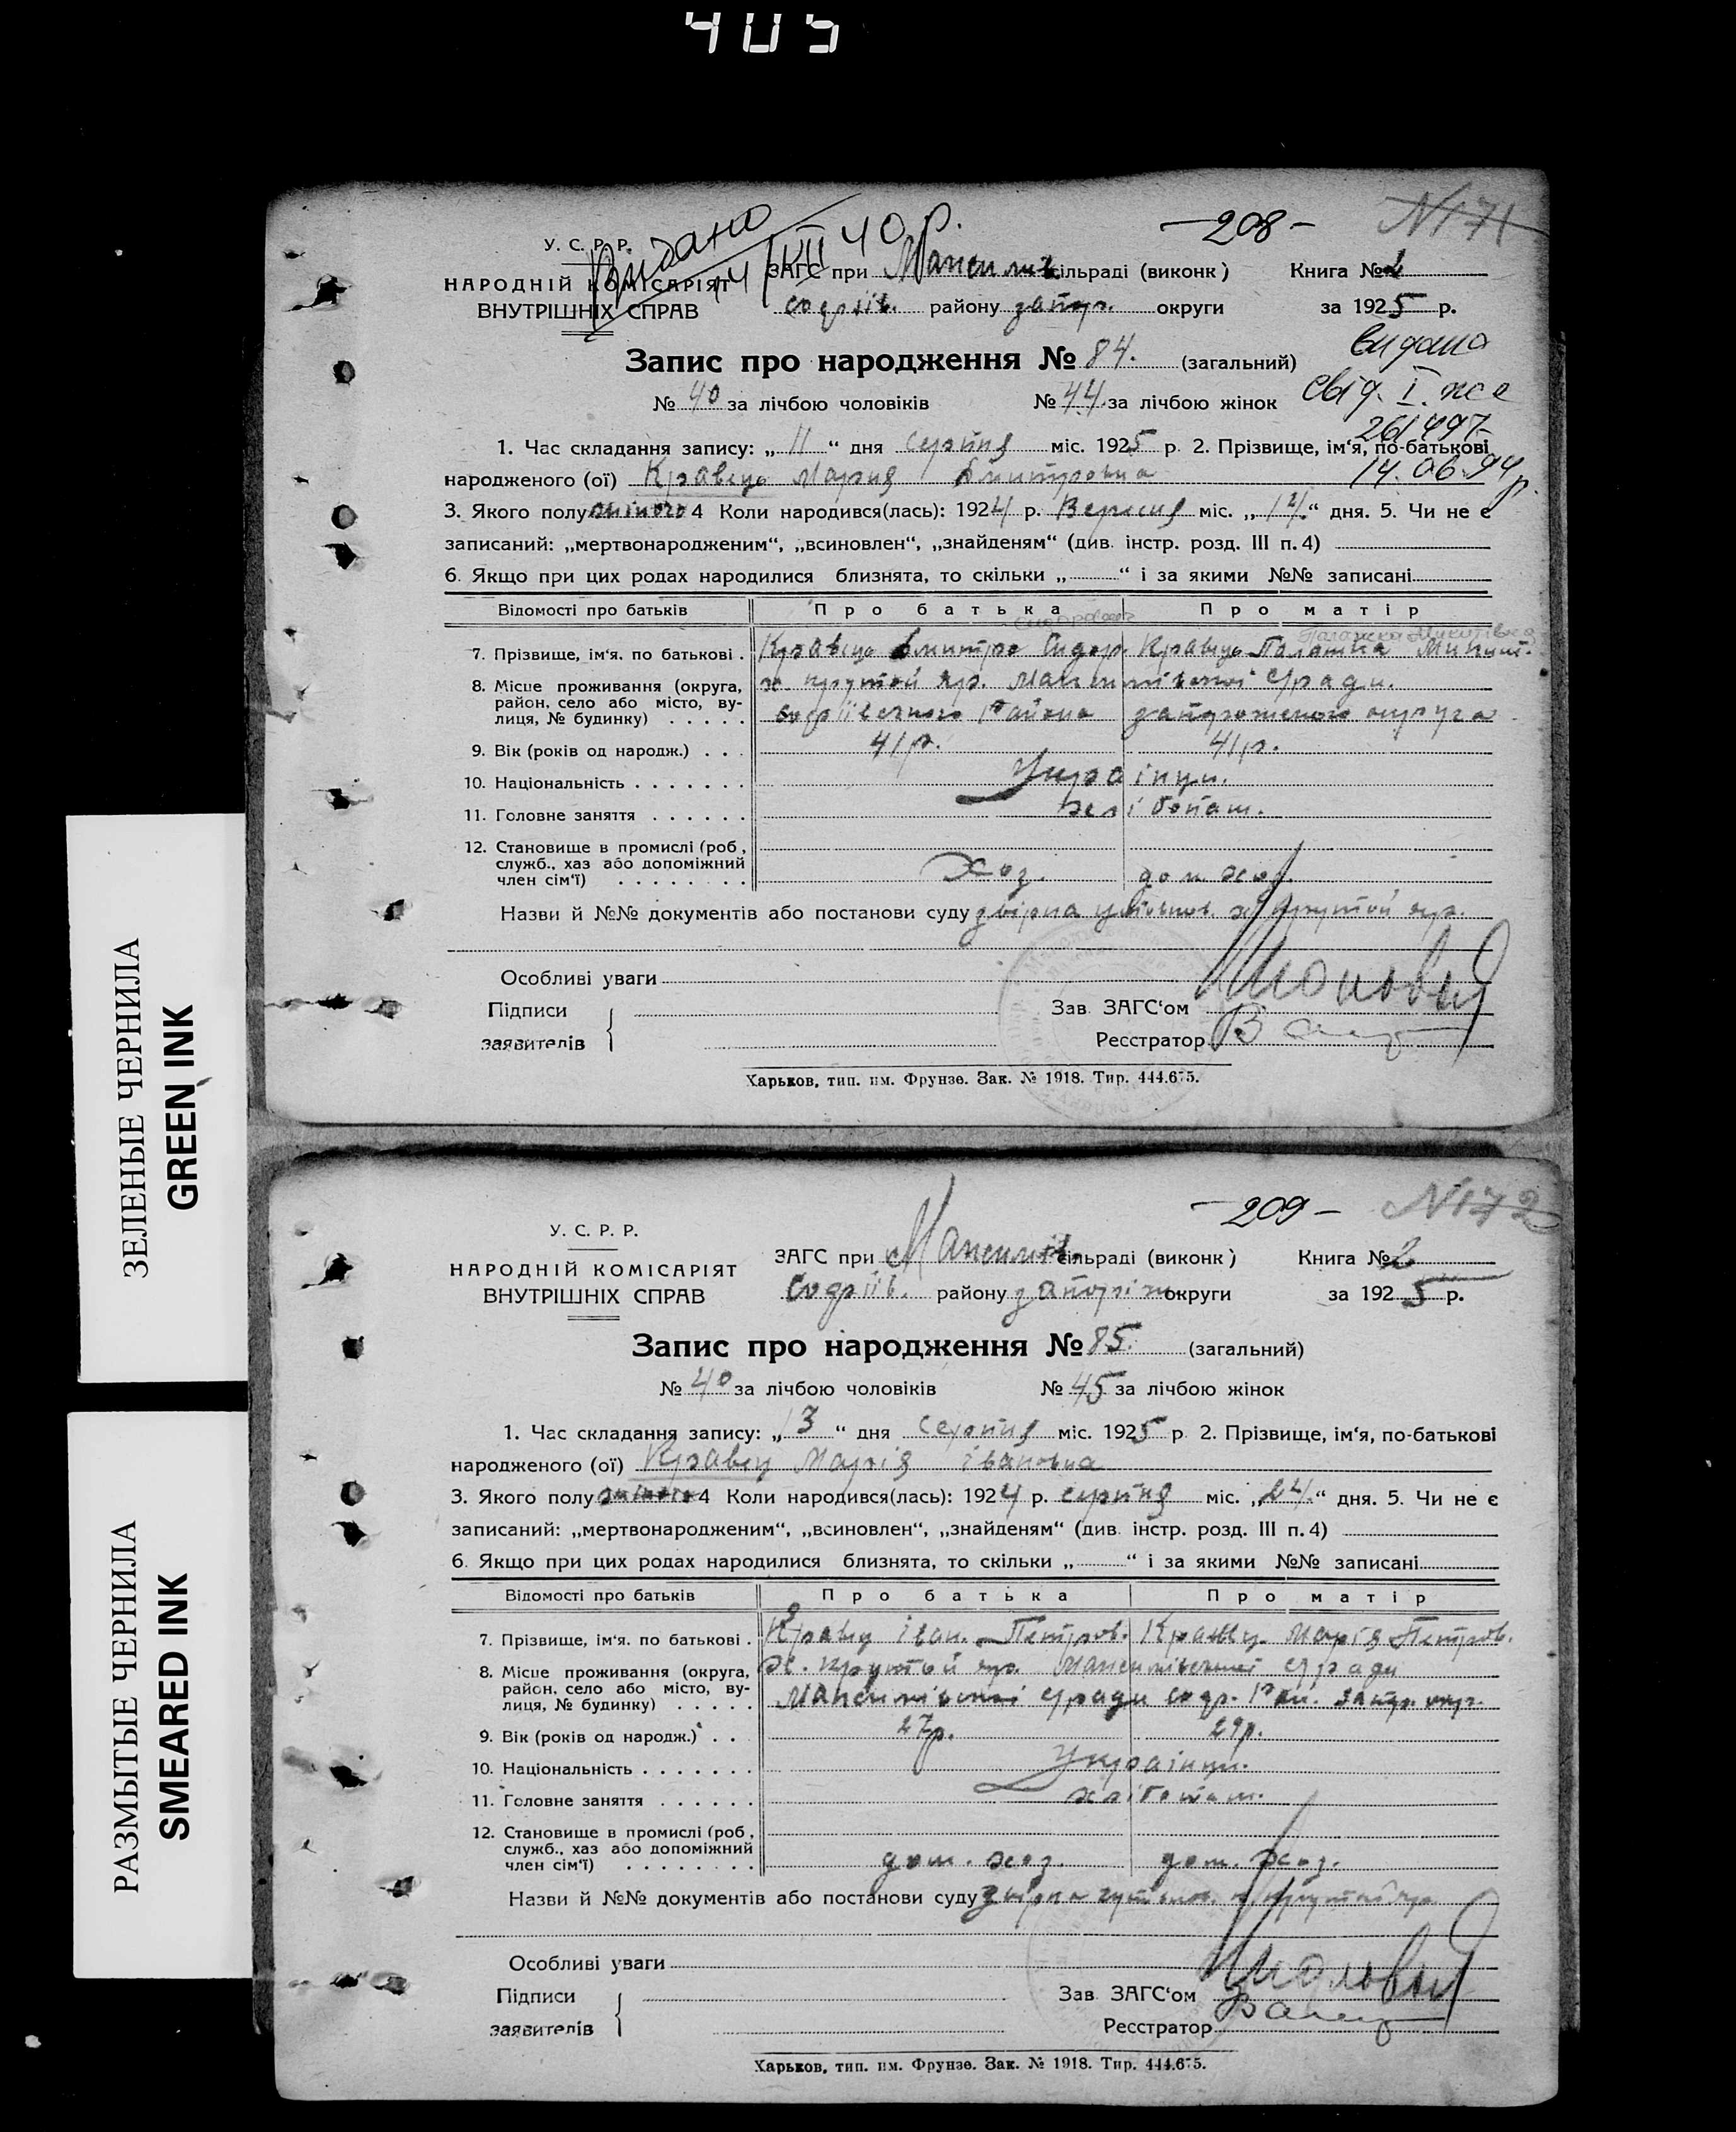 405
ЗЕЛЕНЫЕ ЧЕРНИЛА
GREEN INK
РАЗМЫТЫЕ ЧЕРНИЛА
SMEARED INK
—208—
N171
Видано
14/XII 40 р.
У. С. Р. Р.
НАРОДНІЙ КОМІСАРІЯТ
ВНУТРІШНІХ СПРАВ
ЗАГС при Максимів. сільраді (виконк)
Книга № 2
софіїв. району запор. округи
за 1925 р.
Запис про народження № 84. (загальний)
видана
свід. І. жс
261497
14.06.94р.
№ 40 за лічбою чоловіків № 44. за лічбою жінок
1. Час складання запису: „11“ дня серпня міс. 1925 р. 2. Прізвище, ім'я, по-батькові
народженого (ої) Кравець Мария Дмитровна
3. Якого полу жіного 4 Коли народився(лась): 1924 р. Вересня міс. „14.“ дня. 5. Чи не є
записаний: „мертвонародженим“, „всиновлен“, „знайденям“ (див. інстр. розд. III п. 4)
6. Якщо при цих родах народилися близнята, то скільки „ “ і за якими №№ записані
Відомості про батьків Про батька Про матір
7. Прізвище, ім'я. по батькові . Кравець Дмитро Сидор. Кравець Палашка Микит.
8. Місце проживання (округа, район, село або місто, вулиця, № будинку) х. крутой яр. Максимівської с/ради.
софіївського района запорожского округа
9. Вік (років од народж.) . . . 41 р. 41 р.
10. Національність . . . . . . . Українци.
11. Головне заняття . . . . . . хлібопаш.
12. Становище в промислі (роб, служб., хаз або допоміжний член сім'ї) . . . . . . . . Хоз. дом. хоз.
Назви й №№ документів або постанови суду звірка х. крутой яр.
Особливі уваги
Підписи
заявителів
Зав ЗАГС'ом
Реєстратор
Харьков, тип. им. Фрунзе. Зак. № 1918. Тир. 444.675.
—209—
N172
У. С. Р. Р.
НАРОДНІЙ КОМІСАРІЯТ
ВНУТРІШНІХ СПРАВ
ЗАГС при Максимів. сільраді (виконк)
Книга № 2
Софіїв. району запоріж. округи
за 1925 р.
Запис про народження № 85. (загальний)
№ 40 за лічбою чоловіків № 45 за лічбою жінок
1. Час складання запису: „13“ дня серпня міс. 1925 р 2. Прізвище, ім'я, по-батькові
народженого (ої) Кравец Марія івановна
3. Якого полу жіного 4 Коли народився(лась): 1924 р. серпня міс. „24.“ дня. 5. Чи не є
записаний: „мертвонародженим“, „всиновлен“, „знайденям“ (див. інстр. розд. III п. 4)
6. Якщо при цих родах народилися близнята, то скільки „ “ і за якими №№ записані
Відомості про батьків Про батька Про матір
7. Прізвище, ім'я. по батькові . Кравец іван. Петров. Кравец Марія Петров.
8. Місце проживання (округа, район, село або місто, вулиця, № будинку) х. крутой яр. Максимівської с/ради
Максимівської с/ради соф. Рай. Запор. окр.
9. Вік (років од народж.) . . 27р. 29р.
10. Національність . . . . . . . Українци.
11. Головне заняття . . . . . . хлібопаш.
12. Становище в промислі (роб, служб., хаз або допоміжний член сім'ї) . . . . . . . . дом. хоз. дом. хоз.
Назви й №№ документів або постанови суду звірка х. крутой яр
Особливі уваги
Підписи
заявителів
Зав ЗАГС'ом
Реєстратор
Харьков, тип. им. Фрунзе. Зак. № 1918. Тир. 444.675.